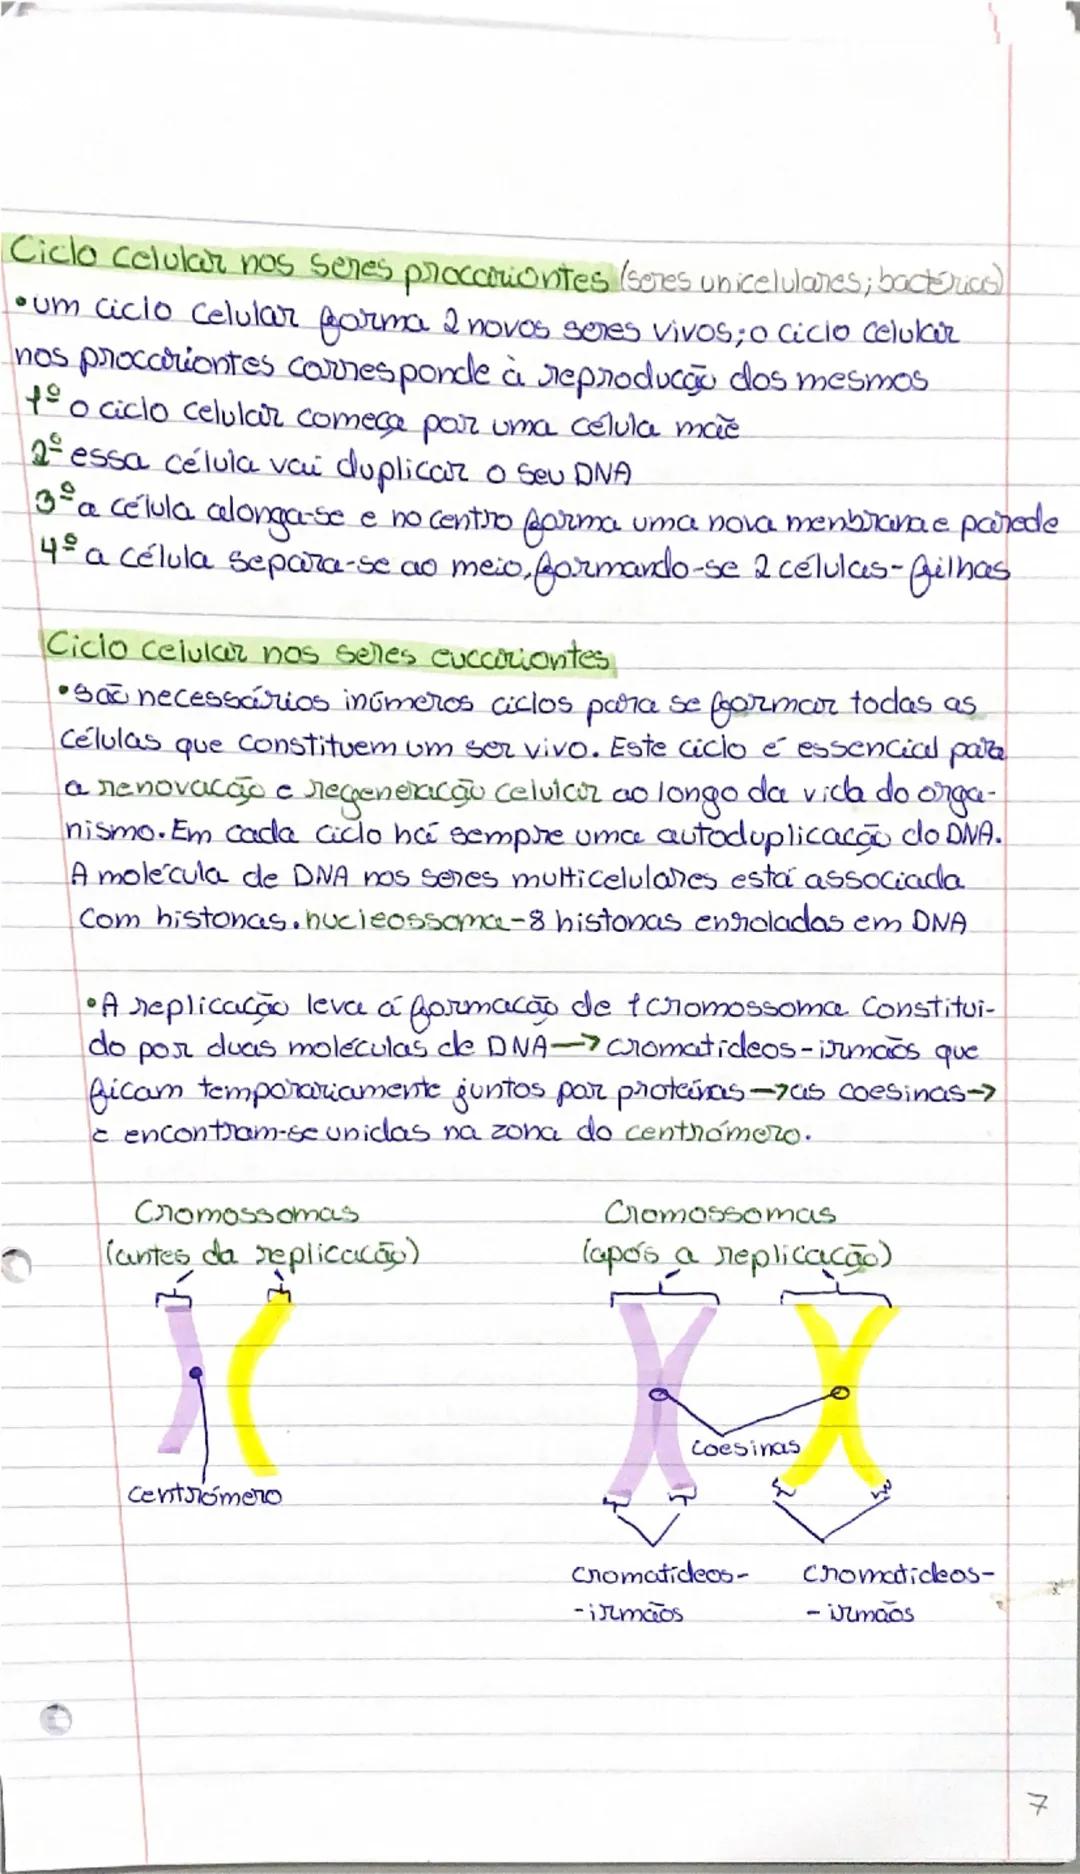 Ciclo celular nos seres procariontes (seres unicelulares; bactérias)
•um ciclo celular forma 2 novos seres vivos; o ciclo celular
nos procariontes corresponde à reprodução dos mesmos
1º o ciclo celular começa por uma célula mãe
2º essa célula vai duplicar o seu DNA
3º a célula alonga-se e no centro forma uma nova menbrana e parede
4º a célula separa-se ao meio, formando-se 2 células-filhas
Ciclo celular nos seres eucariontes
•são necessários inúmeros ciclos para se formar todas as
células que constituem um ser vivo. Este ciclo é essencial para
a renovação e regeneração celular ao longo da vida do orga-
nismo. Em cada ciclo há sempre uma autoduplicação do DNA.
A molécula de DNA nos seres multicelulares está associada
com histonas. nucleossoma-8 histonas enroladas em DNA
•A replicação leva á formação de 1 cromossoma constitui-
do por duas moléculas de DNA→ cromatídeos-irmãos que
ficam temporariamente juntos por proteínas→as coesinas→
e encontram-se unidas na zona do centrómero.
Cromossomas
(antes da replicação)
Cromossomas
(após a replicação)
coesinas
centrómero
cromatídeos-
-irmãos
cromatídeos-
-irmãos
7